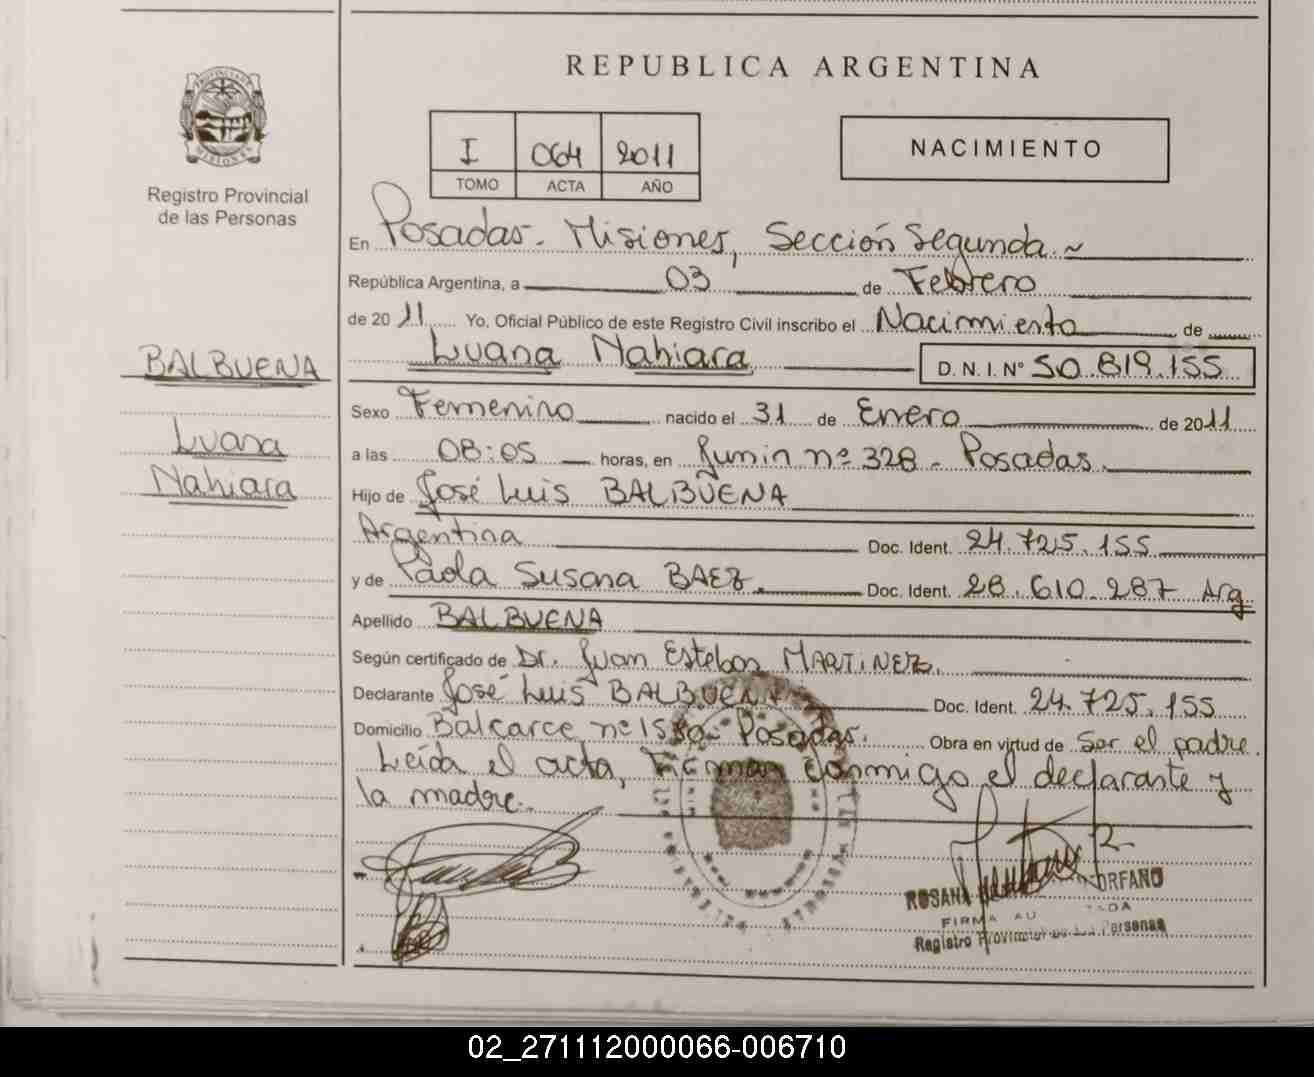 REPUBLICA ARGENTINA
I 064 2011
TOMO ACTA AÑO
NACIMIENTO
Registro Provincial
de las Personas
En Posadas. Misiones, Sección Segunda.~
República Argentina, a 03 de Febrero
de 2011 Yo, Oficial Público de este Registro Civil inscribo el Nacimiento de
Luana Nahiara D. N. I. N° 50.819.155
BALBUENA
Luana
Nahiara
Sexo Femenino nacido el 31 de Enero de 2011
a las 08:05 horas, en Junin nº 328 - Posadas.
Hijo de José Luis BALBUENA
Argentina Doc. Ident. 24.725.155
y de Paola Susana BAEZ. Doc. Ident. 28.610.287 Arg
Apellido BALBUENA
Según certificado de Dr. Juan Esteban MARTINEZ.
Declarante José Luis BALBUENA Doc. Ident. 24.725.155
Domicilio Balcarce nº 1580- Posadas. Obra en virtud de Ser el padre.
Leída el acta, Firman conmigo el declarante y
la madre.
ROSANA ORFANO
FIRMA AU
Registro Provincial de las Personas
02_271112000066-006710